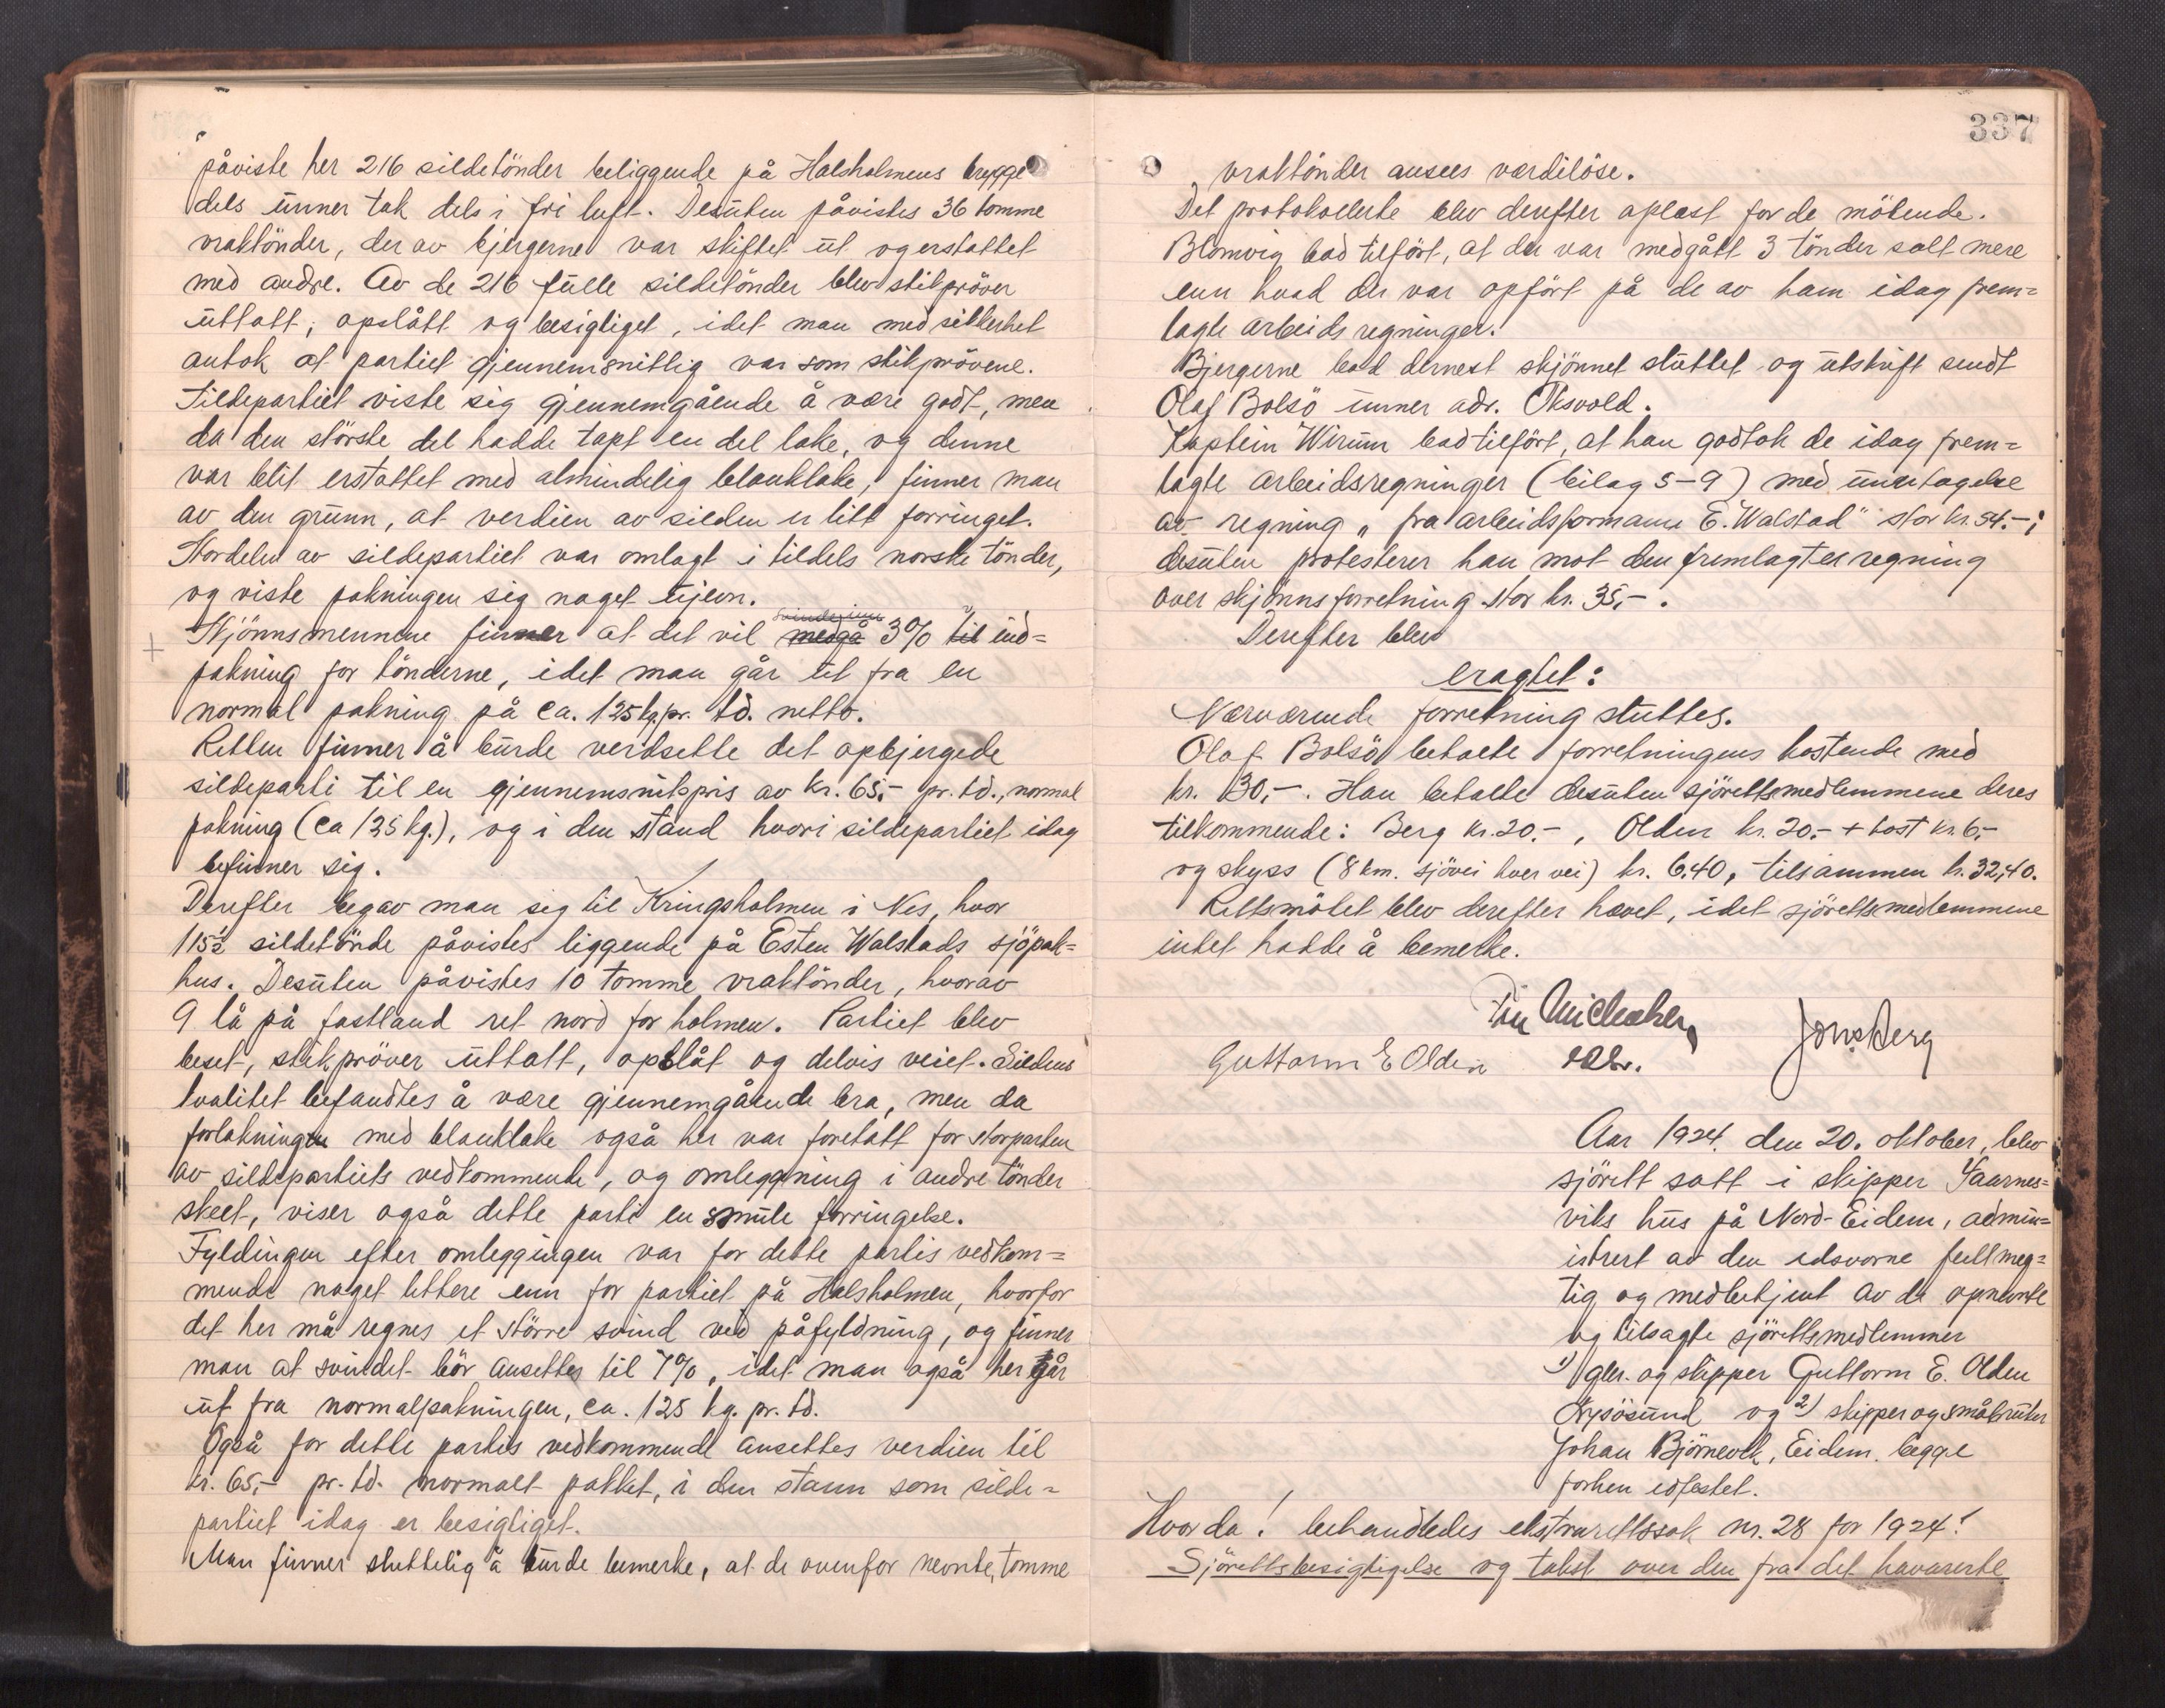 påviste her 216 sildetönder beliggende på Halsholmens brygge
dels unner tak dels i fri luft. Desuten påvistes 36 tomme
vraktönder, der av bjergerne var skiftet ut og erstattet
med andre. Av de 216 fulle sildetönder blev stikpröver
uttatt, opslått og besigtiget, idet man med sikkerhet
antok at partiet gjennemsnittlig var som stikprövene.
Sildepartiet viste sig gjennemgående å være godt, men
da den störste del hadde tapt en del lake, og denne
var blit erstattet med almindelig blanklake, finner man
av den grunn, at verdien av silden er litt forringet.
Stordelen av sildepartiet var omlagt i tildels norske tönder,
og viste pakningen sig noget ujevn.
Skjönnsmennene finner at det vil medgå svinde inn 3% til ind=
pakning for tönderne, idet man går ut fra en
normal pakning på ca. 125 kg. pr. td. netto.
Retten finner å burde verdsette det opbjergede
sildeparti til en gjennemsnitspris av kr. 65,- pr. td., normal
pakning (ca 125 kg.), og i den stand hvori sildepartiet idag
befinner sig.
Derefter begav man sig til Kringsholmen i Nes, hvor
115½ sildetönde påvistes liggende på Esten Walstads sjöpak=
hus. Desuten påvistes 10 tomme vraktönder, hvorav
9 lå på fastland ret nord for holmen. Partiet blev
beset, stikpröver uttatt, opslåt og delvis veiet. Sildens
kvalitet befandtes å være gjennemgående bra, men da
forlakningen med blanklake også her var foretatt for storparten
av sildepartiets vedkommende, og omleggning i andre tönder
skeet, viser også dette parti en smule forringelse.
Fyldingen efter omleggingen var for dette partis vedkom=
mende noget lettere enn for partiet på Halsholmen, hvorfor
det her må regnes et större svind ved påfyldning, og finner
man at svindet bör ansettes til 7%, idet man også her går
ut fra normalpakningen, ca. 125 kg. pr. td.
Også for dette partis vedkommende ansettes verdien til
kr. 65,- pr. td. normalt pakket, i den stann som silde=
partiet idag er besigtiget.
Man finner sluttelig å burde bemerke, at de ovenfor nevnte, tomme
337
vraktönder ansees værdilöse.
Det protokollerte blev derefter oplæst for de mötende.
Blomvig bad tilfört, at der var medgått 3 tönder salt mere
enn hvad der var opfört på de av ham idag frem=
lagte arbeidsregninger.
Bjergerne bad dernest skjönnet sluttet og utskrift sendt
Olaf Bolsö unner adr. Oksvold.
Kaptein Wirum bad tilfört, at han godtok de idag frem=
lagte arbeidsregninger (bilag 5-9) med unntagelse
av regning "fra arbeidsformann E. Walstad" stor kr. 54.-;
desuten protesterer han mot den fremlagte regning
over skjönnsforretning stor kr. 35,-.
Derefter blev
eragtet:
Nærværende forretning sluttes.
Olaf Bolsö betalte forretningens kostende med
kr. 30,-. Han betalte desuten sjörettsmedlemmene deres
tilkommende: Berg kr. 20.-, Olden kr. 20.- + kost kr. 6,-
og skyss (8 km. sjövei hver vei) kr. 6.40, tilsammen kr. 32,40.
Rettsmötet blev derefter hævet, idet sjörettsmedlemmene
intet hadde å bemerke.
Guttorm E Olden
Jons Berg
Aar 1924. den 20. oktober, blev
sjörett satt i skipper Saurnes=
viks hus på Nord-Eidem, admin=
istrert av den edsvorne fullmeg=
tig og medbetjent av de opnevnte
og tilsagte sjörettsmedlemmer
1) gbr. og skipper Guttorm E. Olden
Lysösund og 2) skipper og småbruker
Johan Björnevik, Eidem, begge
forhen edfestet.
Hvorda! behandledes ekstrarettssak nr. 28 for 1924:
Sjörettsbesigtigelse og takst over den fra det havarerte